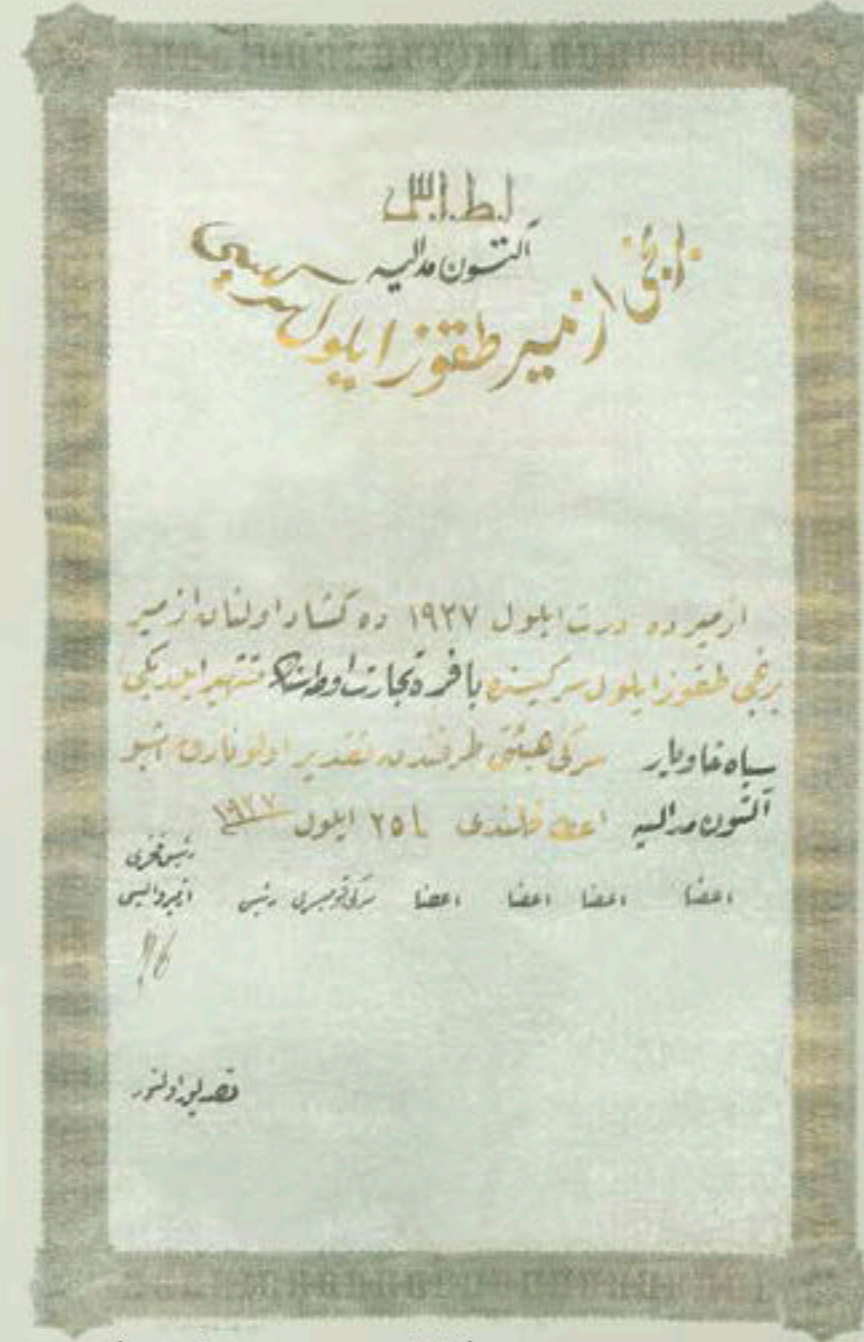 ا.ط.ا.س
آلتون مدالیه
برنجی ازمیر طقوز ایلول سرکیسی
ازمیرده درت ایلول ۱۹۲۷ ده کشاد اولنان ازمیر
برنجی طقوز ایلول سرکیسنده بافره تجارت اوطه‌سنك تشهیر ایلدیکی
سیاه خاویار سرکی هیئتی طرفندن تقدیر اولونارق اشبو
آلتون مدالیه اعطا قلندی ۲۵ ایلول ۱۹۲۷
رئیس فخری
اعضا اعضا اعضا اعضا سرکی قومیسری رئیس ازمیر والیسی
تصدیق اولنور